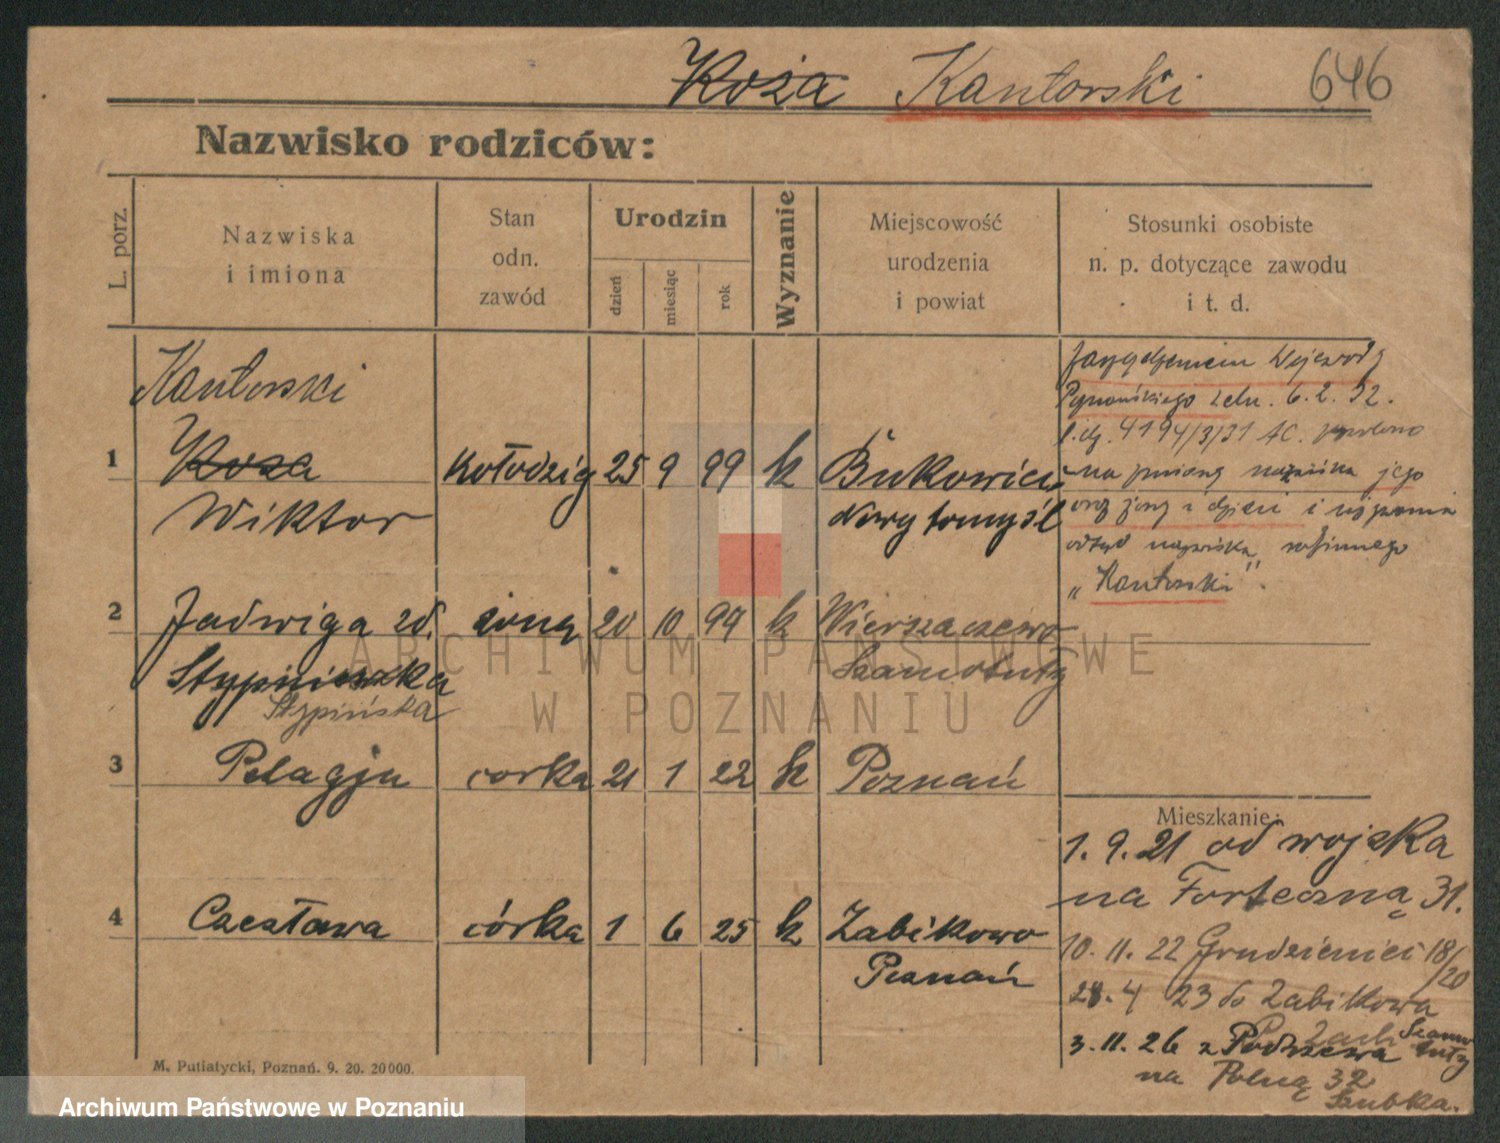 Koża Kantorski 646
Nazwisko rodziców:
L. porz.
Nazwiska
i imiona
Stan
odn.
zawód
Urodzin
dzień
miesiąc
rok
Wyznanie
Miejscowość
urodzenia
i powiat
Stosunki osobiste
n. p. dotyczące zawodu
i t. d.
Kantorski
1 Koza kołodziej 25 9 99 k Bukowiec
Wiktor Nowytomyśl
2 Jadwiga zd. żona 20 10 99 k Wierzaczewo
Stypniewzka Szamotuły
Stypińska
3 Pelagja corka 21 1 22 k Poznań
4 Czesława córka 1 6 25 k Zabikowo
Poznań
Zarządzeniem Wojewody
Poznańskiego z dn. 6. 2. 32.
l. dz. 4194/3/31 AC. zezwolono
na zmianę nazwiska jego
oraz żony i dzieci i używania
odtąd nazwiska rodzinnego
„Kantorski".
Mieszkanie:
1. 9. 21 od wojska
na Forteczną 31.
10. 11. 22 Grudzieniec 18/20
28. 4 23 do Zabikowa
3. 11. 26 z Podrzewa Szamotuły
na Polną 32
Szubka.
M. Putiatycki, Poznań. 9. 20. 20000.
ARCHIWUM PAŃSTWOWE
W POZNANIU
Archiwum Państwowe w Poznaniu